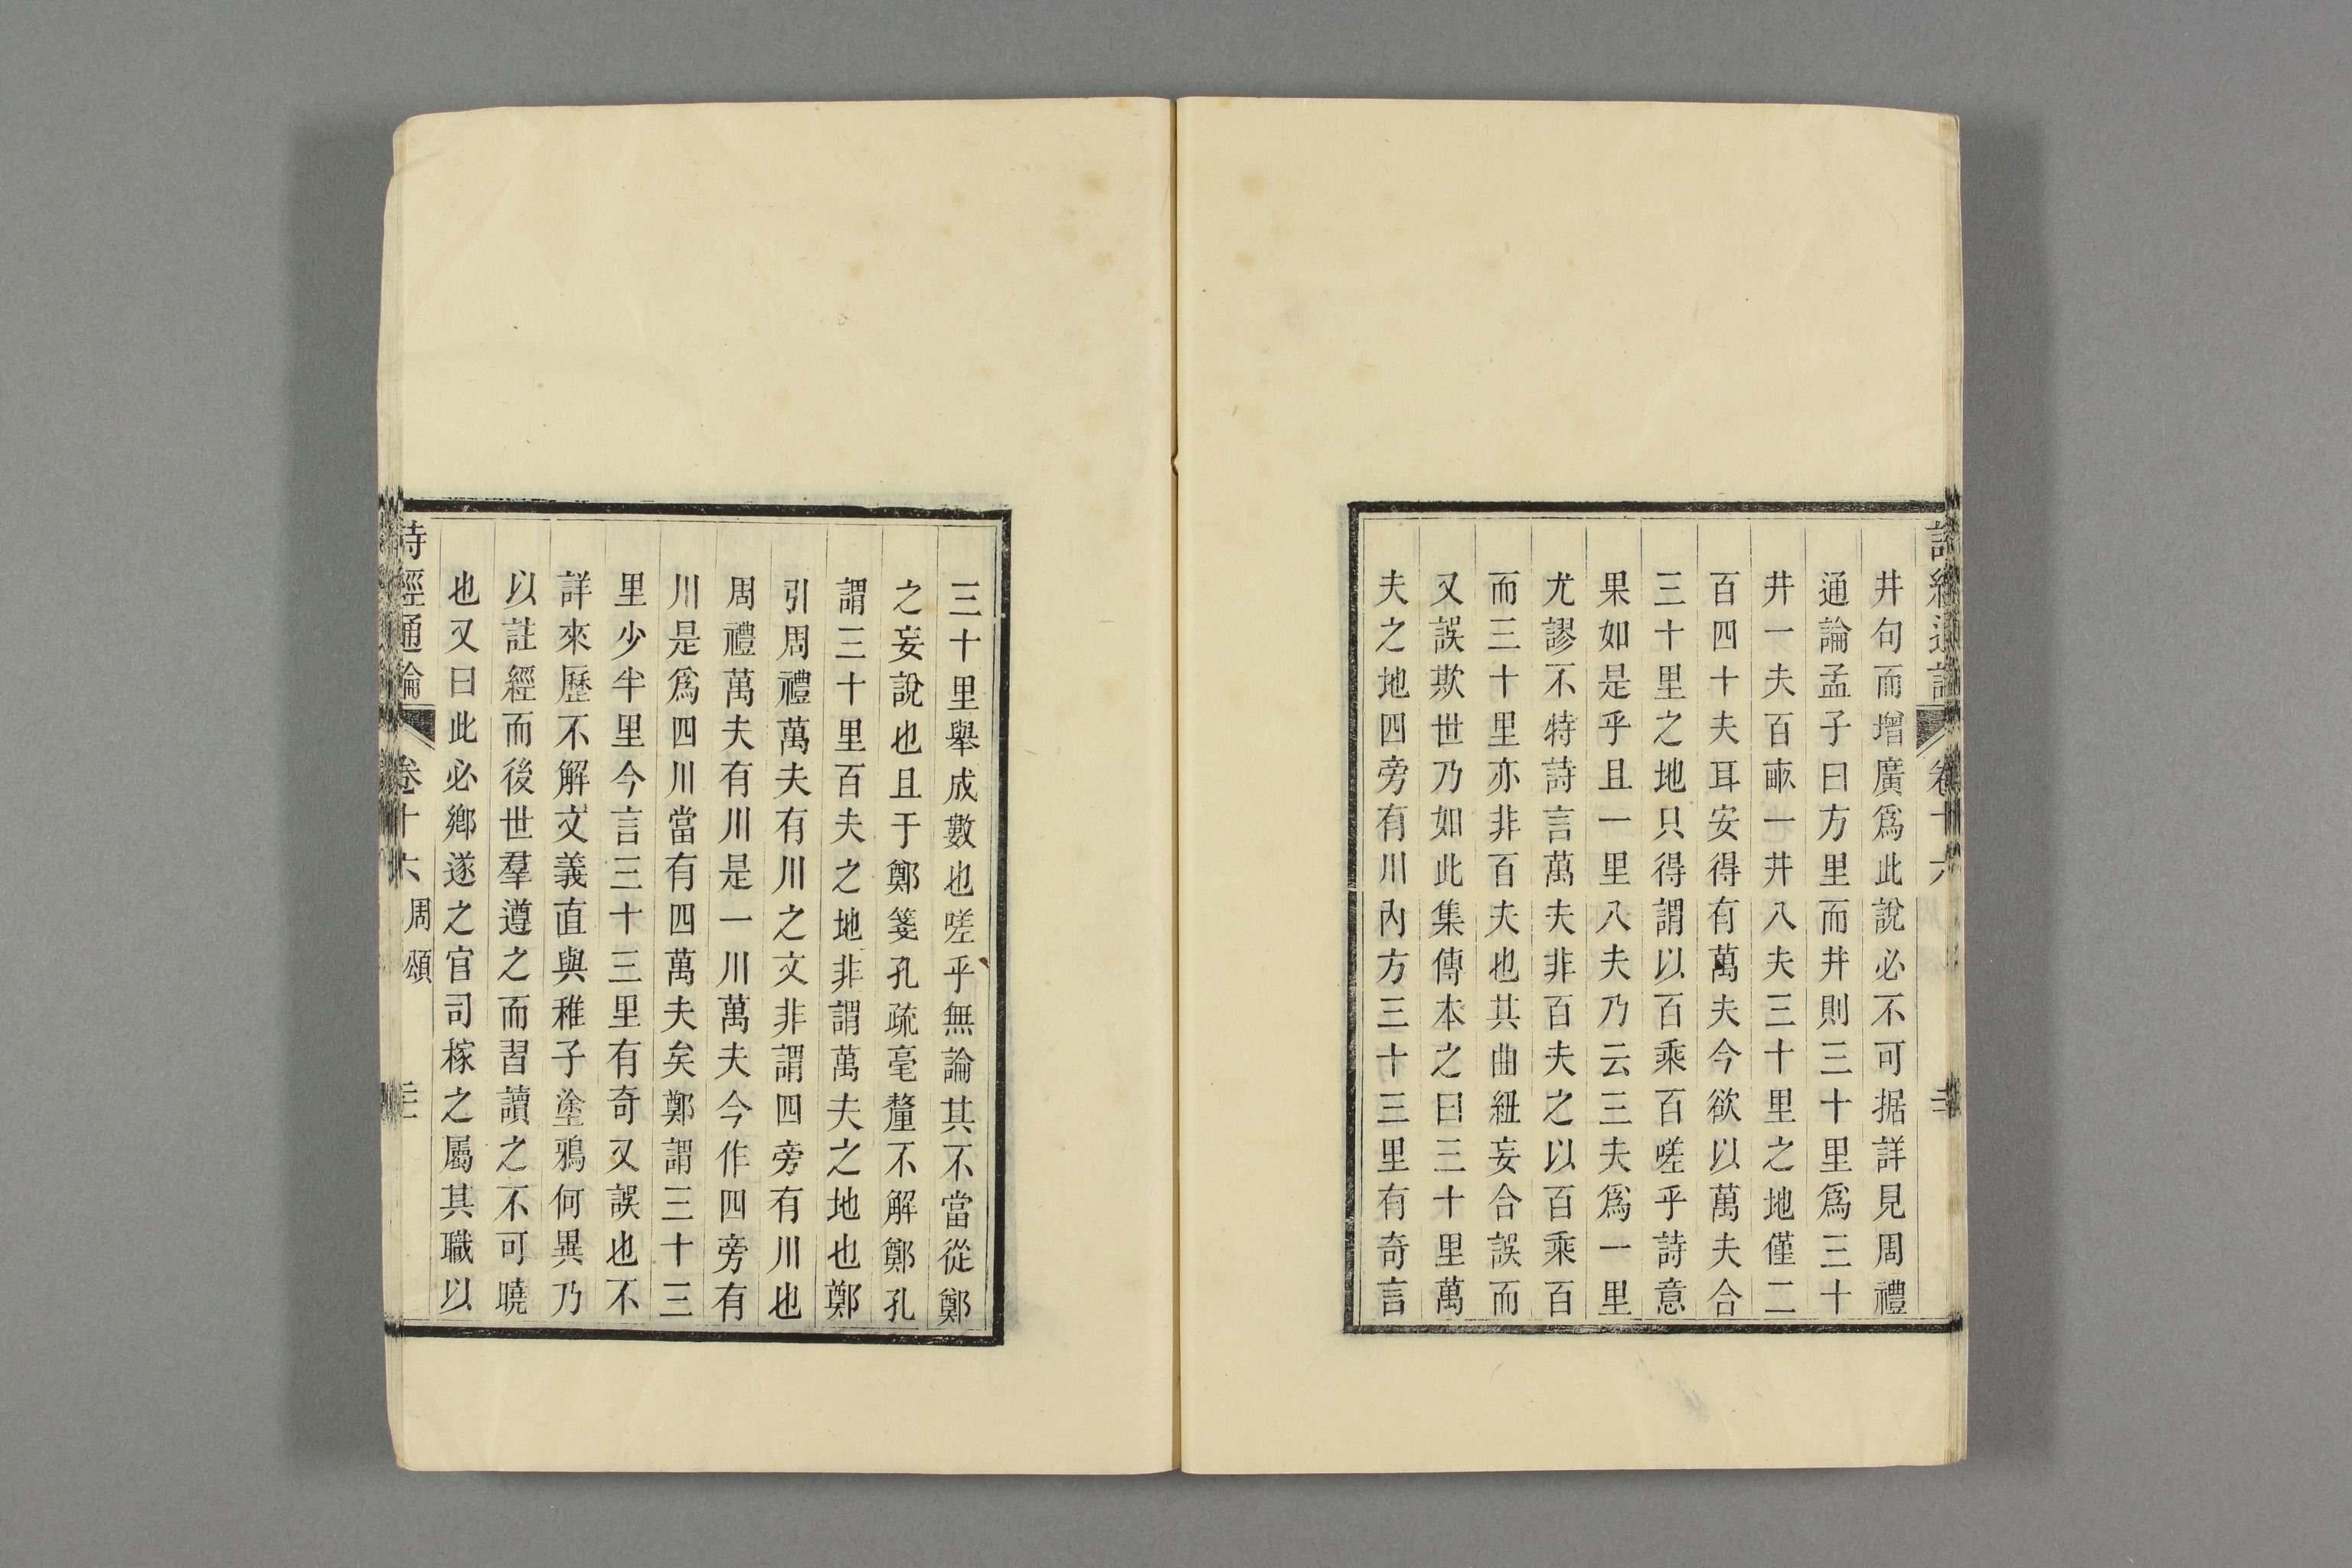 詩經通論 卷十六
井句而增廣爲此說必不可据詳見周禮
通論孟子曰方里而井則三十里爲三十
井一夫百畝一井八夫三十里之地僅二
百四十夫耳安得有萬夫今欲以萬夫合
三十里之地只得謂以百乘百嗟乎詩意
果如是乎且一里八夫乃云三夫爲一里
尤謬不特詩言萬夫非百夫之以百乘百
而三十里亦非百夫也其曲紐妄合誤而
又誤欺世乃如此集傳本之曰三十里萬
夫之地四旁有川內方三十三里有奇言
三十里舉成數也嗟乎無論其不當從鄭
之妄說也且于鄭箋孔疏毫釐不解鄭孔
謂三十里百夫之地非謂萬夫之地也鄭
引周禮萬夫有川之文非謂四旁有川也
周禮萬夫有川是一川萬夫今作四旁有
川是爲四川當有四萬夫矣鄭謂三十三
里少半里今言三十三里有奇又誤也不
詳來歷不解文義直與稚子塗鴉何異乃
以註經而後世羣遵之而習讀之不可曉
也又曰此必鄉遂之官司稼之屬其職以
詩經通論 卷十六 周頌